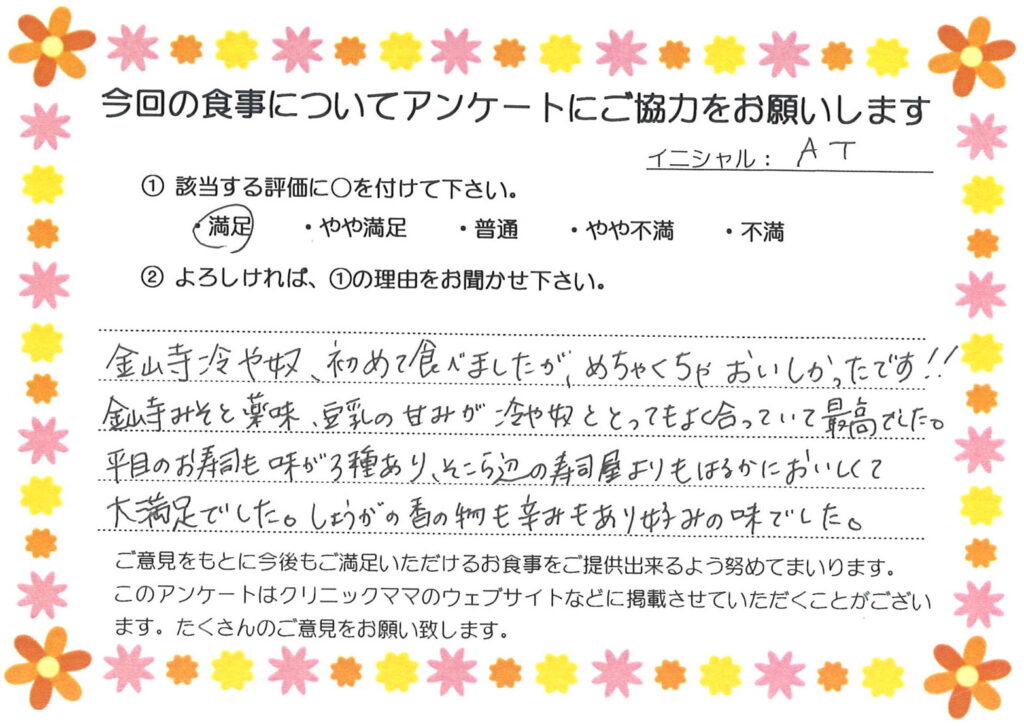 今回の食事についてアンケートにご協力をお願いします
イニシャル： AT
① 該当する評価に○を付けて下さい。
・満足 ・やや満足 ・普通 ・やや不満 ・不満
② よろしければ、①の理由をお聞かせ下さい。
金山寺冷や奴、初めて食べましたが、めちゃくちゃおいしかったです!!
金山寺みそと薬味、豆乳の甘みが冷や奴ととってもよく合っていて最高でした。
平目のお寿司も味が3種あり、そこら辺の寿司屋よりもはるかにおいしくて
大満足でした。しょうがの香の物も辛みもあり好みの味でした。
ご意見をもとに今後もご満足いただけるお食事をご提供出来るよう努めてまいります。
このアンケートはクリニックママのウェブサイトなどに掲載させていただくことがござい
ます。たくさんのご意見をお願い致します。